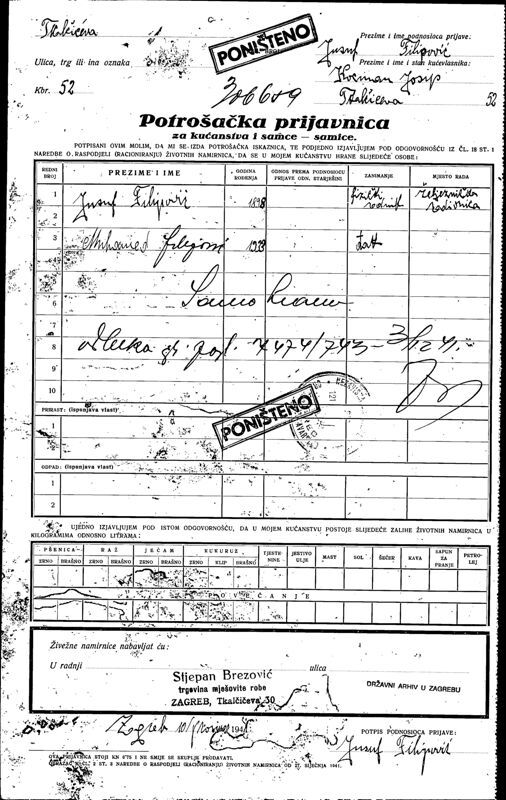 Tkalčićeva
PONIŠTENO
Prezime i ime podnosioca prijave:
Jusuf Filipović
Ulica, trg ili ina oznaka
Prezime i ime i stan kućevlasnika:
Kbr. 52
Josip
306609
Tkalčićeva 52
Potrošačka prijavnica
za kućanstva i samce — samice.
POTPISANI OVIM MOLIM, DA MI SE IZDA POTROŠAČKA ISKAZNICA, TE PODJEDNO IZJAVLJUJEM POD ODGOVORNOŠĆU IZ ČL. 18 ST. 1
NAREDBE O RASPODJELI (RACIONIRANJU) ŽIVOTNIH NAMIRNICA, DA SE U MOJEM KUĆANSTVU HRANE SLIJEDEĆE OSOBE:
REDNI BROJ PREZIME I IME GODINA ROĐENJA ODNOS PREMA PODNOSIOCU PRIJAVE ODN. STARJEŠINI ZANIMANJE MJESTO RADA
1 Jusuf Filipović 1898 fizički radnik željeznička radionica
2
3 Muhamed Filipović
4
5
6 Samo hranu
7
8 Odluka gr. pogl. 7474/743-
9
10
PRIRAST: (ispunjava vlast)
PONIŠTENO
1
2
OTPAD: (ispunjava vlast)
1
2
UJEDNO IZJAVLJUJEM POD ISTOM ODGOVORNOŠĆU, DA U MOJEM KUĆANSTVU POSTOJE SLIJEDEĆE ZALIHE ŽIVOTNIH NAMIRNICA U
KILOGRAMIMA ODNOSNO LITRAMA:
PŠENICA RAŽ JEČAM KUKURUZ TJESTENINE JESTIVO ULJE MAST SOL ŠEĆER KAVA SAPUN ZA PRANJE PETROLEJ
ZRNO BRAŠNO ZRNO BRAŠNO ZRNO BRAŠNO ZRNO KLIP BRAŠNO
POVEĆANJE
ZRNO BRAŠNO ZRNO BRAŠNO ZRNO BRAŠNO ZRNO KLIP BRAŠNO
Živežne namirnice nabavljat ću:
U radnji
ulica
Stjepan Brezović
trgovina mješovite robe
ZAGREB, Tkalčićeva 30
DRŽAVNI ARHIV U ZAGREBU
Zagreb 10/ 194
POTPIS PODNOSIOCA PRIJAVE:
Jusuf Filipović
OVA PRIJAVNICA STOJI KN 0'75 I NE SMIJE SE SKUPLJE PRODAVATI.
OBRAZAC 1 ČL. 2 ST. 2 NAREDBE O RASPODJELI (RACIONIRANJU) ŽIVOTNIH NAMIRNICA OD 27. SIJEČNJA 1941.